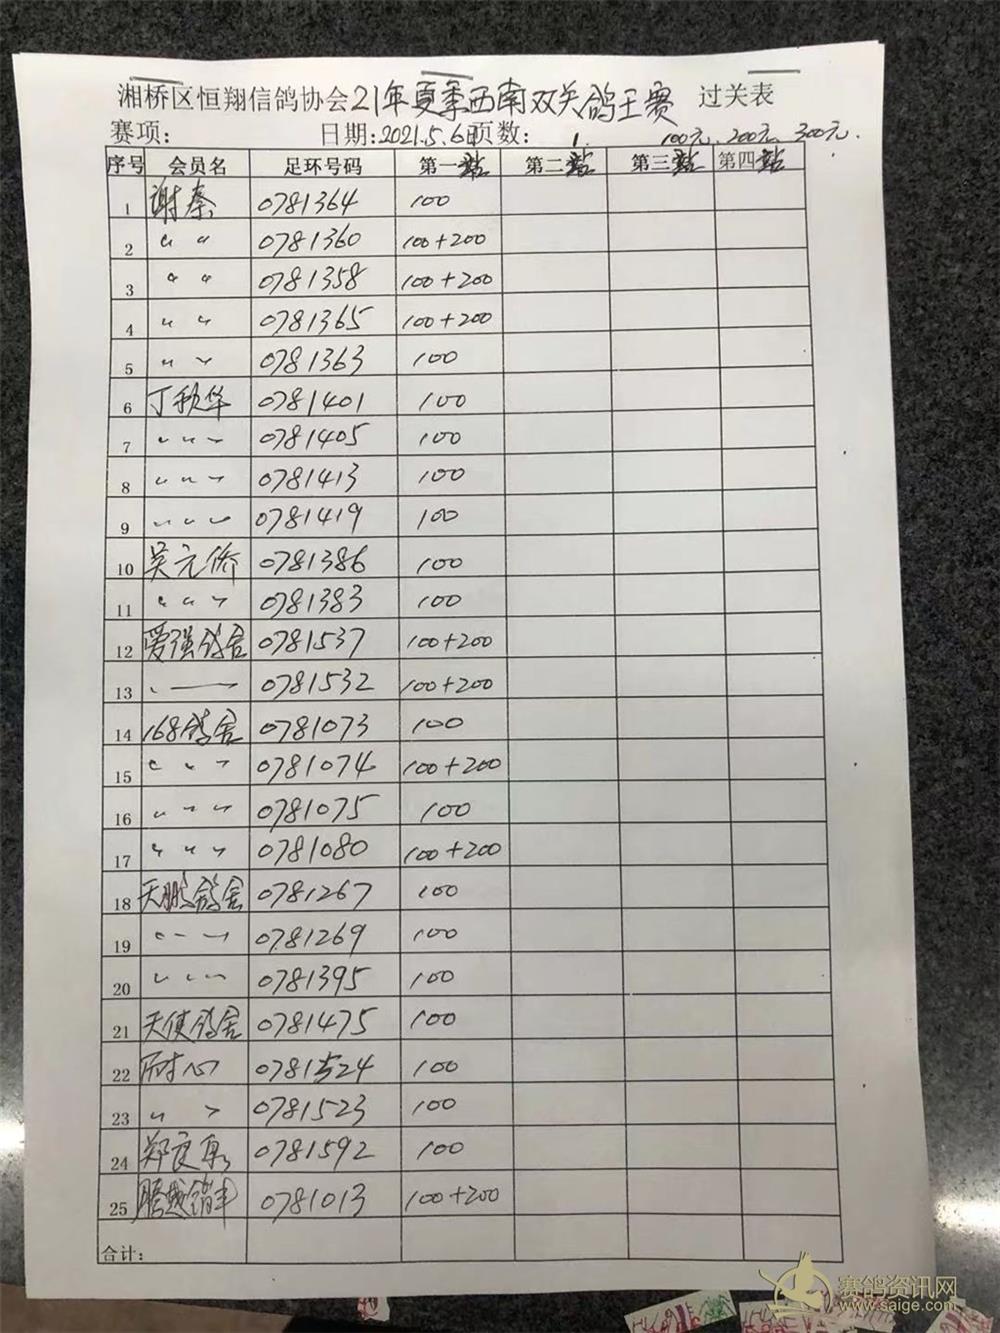 湘桥区恒翔信鸽协会21年夏季西南双关鸽王赛 过关表
赛项: 日期:2021.5.6日 页数: 1 100元、200元、300元.
序号 会员名 足环号码 第一站 第二站 第三站 第四站
1 谢泰 0781364 100
2 〃 〃 0781360 100+200
3 〃 〃 0781358 100+200
4 〃 〃 0781365 100+200
5 〃 〃 0781363 100
6 丁秋华 0781401 100
7 〃 〃 〃 0781405 100
8 〃 〃 〃 0781413 100
9 〃 〃 〃 0781419 100
10 吴元侨 0781386 100
11 〃 〃 〃 0781383 100
12 爱强鸽舍 0781537 100+200
13 0781532 100+200
14 168鸽舍 0781073 100
15 〃 〃 〃 0781074 100+200
16 〃 〃 〃 0781075 100
17 〃 〃 〃 0781080 100+200
18 天鹏鸽舍 0781267 100
19 〃 〃 〃 0781269 100
20 〃 〃 〃 0781395 100
21 天使鸽舍 0781475 100
22 耐心 0781524 100
23 〃 〃 0781523 100
24 郑良 0781592 100
25 腾越 0781013 100+200
合计:
赛鸽资讯网
www.saige.com